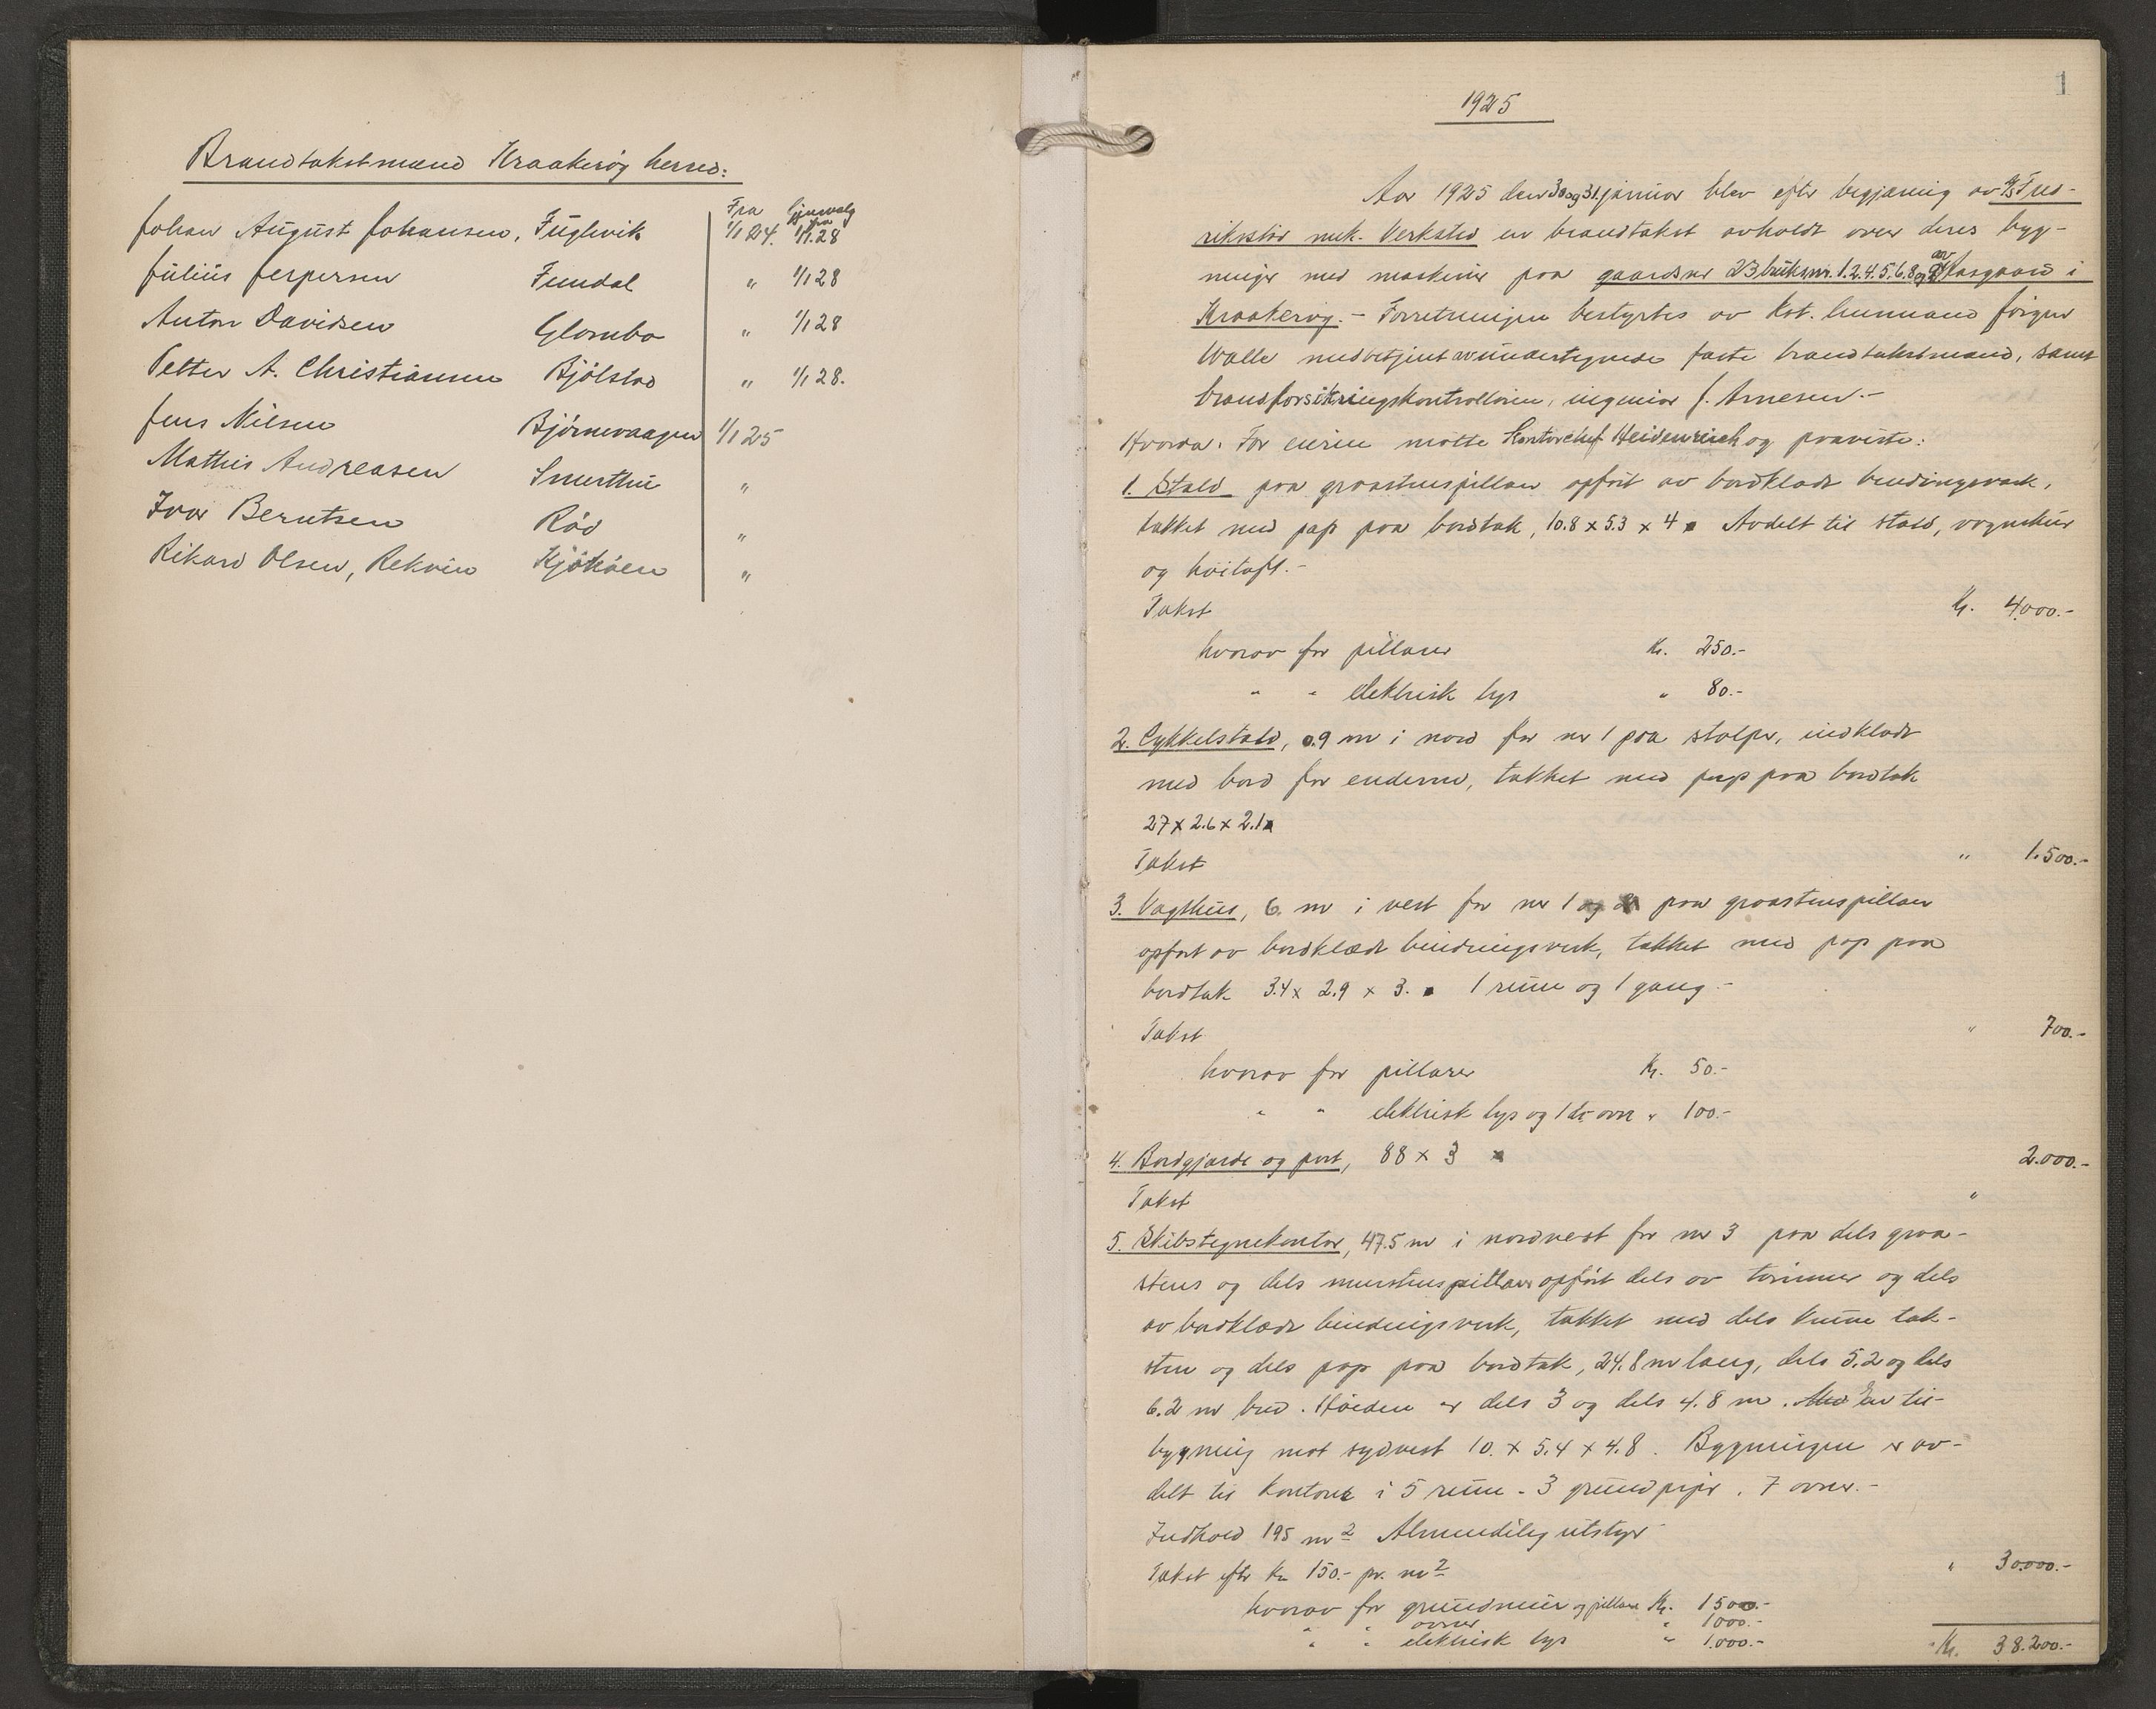 Brandtakstmænd Kraakerøy herred:
Fra Gjenvalg fra
Johan August Johansen, Fuglevik 1/1 24. 1/1.28
Julius Jespersen Femdal " 1/1 28
Anton Davidsen Glombo " 1/1 28
Petter A. Christiansen Bjölstad " 1/1 28.
Jens Nilsen Björnevaagen 1/1 25
Mathis Andreasen Smerthu "
Ivar Berntsen Röd "
Rikard Olsen, Rekvin Kjököen "
1
1925
Aar 1925 den 30 og 31. januar blev efter begjæring av A/S Fred-
rikstad mek. Verksted en brandtakst avholdt over deres byg-
ninger med maskiner paa gaardsnr 23 bruksnr. 1.2.4.5.6.8 og 9 av Aasgaard i
Kraakeröy. - Forretningen bestyrtes av Kst. lensmand Jörgen
Walle medbetjent av undertegnede faste brandtakstmænd, samt
brandforsikringskontrollören, ingeniör J. Arnesen. -
Hvorda: For eieren mötte Kontorchef Heidenreich og paaviste:
1. Stald paa graastenspillarer opfört av bordklædt bindingsverk,
tækket med pap paa bordtak, 10.8 x 5.3 x 4 Avdelt til stald, vognskur
og höiloft. -
Takst Kr. 4.000.-
hvorav for pillarer Kr. 250.-
" " elektrisk lys " 80.-
2. Cykkelstald, 0.9 m i nord for nr 1 paa stolper, indklædt
med bord for enderne, tækket med pap paa bordtak
27 x 2.6 x 2.1
Takst " 1.500.-
3. Vagthus, 6. m i vest for nr 1 paa graastenspillarer
opfört av bordklædt bindingsverk, tækket med pap paa
bordtak 3.4 x 2.9 x 3. 1 rum og 1 gang. -
Takst " 700.-
hvorav for pillarer Kr. 50.-
" " elektrisk lys og 1 do ovn " 100.-
4. Bordgjærde og port, 88 x 3 2.000.-
Takst "
5. Skibstegnekontor, 47.5 m i nordvest for nr 3 paa dels graa-
stens og dels murstenspillarer opfört dels av tömmer og dels
av bordklædt bindingsverk, tækket med dels krum tak-
sten og dels pap paa bordtak, 24.8 m lang, dels 5.2 og dels
6.2 m bred. Höiden er dels 3 og dels 4.8 m. En til-
bygning mot sydvest 10. x 5.4 x 4.8. Bygningen er av-
delt til kontorer i 5 rum - 3 grundpiper. 7 ovner. -
Indhold 195 m2 Almindelig utstyr
Takst efter Kr 150.- pr. m2 " 30.000.-
hvorav for grundmur og pillarer Kr. 1500.-
" " ovner " 1000.-
" " elektrisk lys " 1.000.-
Kr. 38.200.-